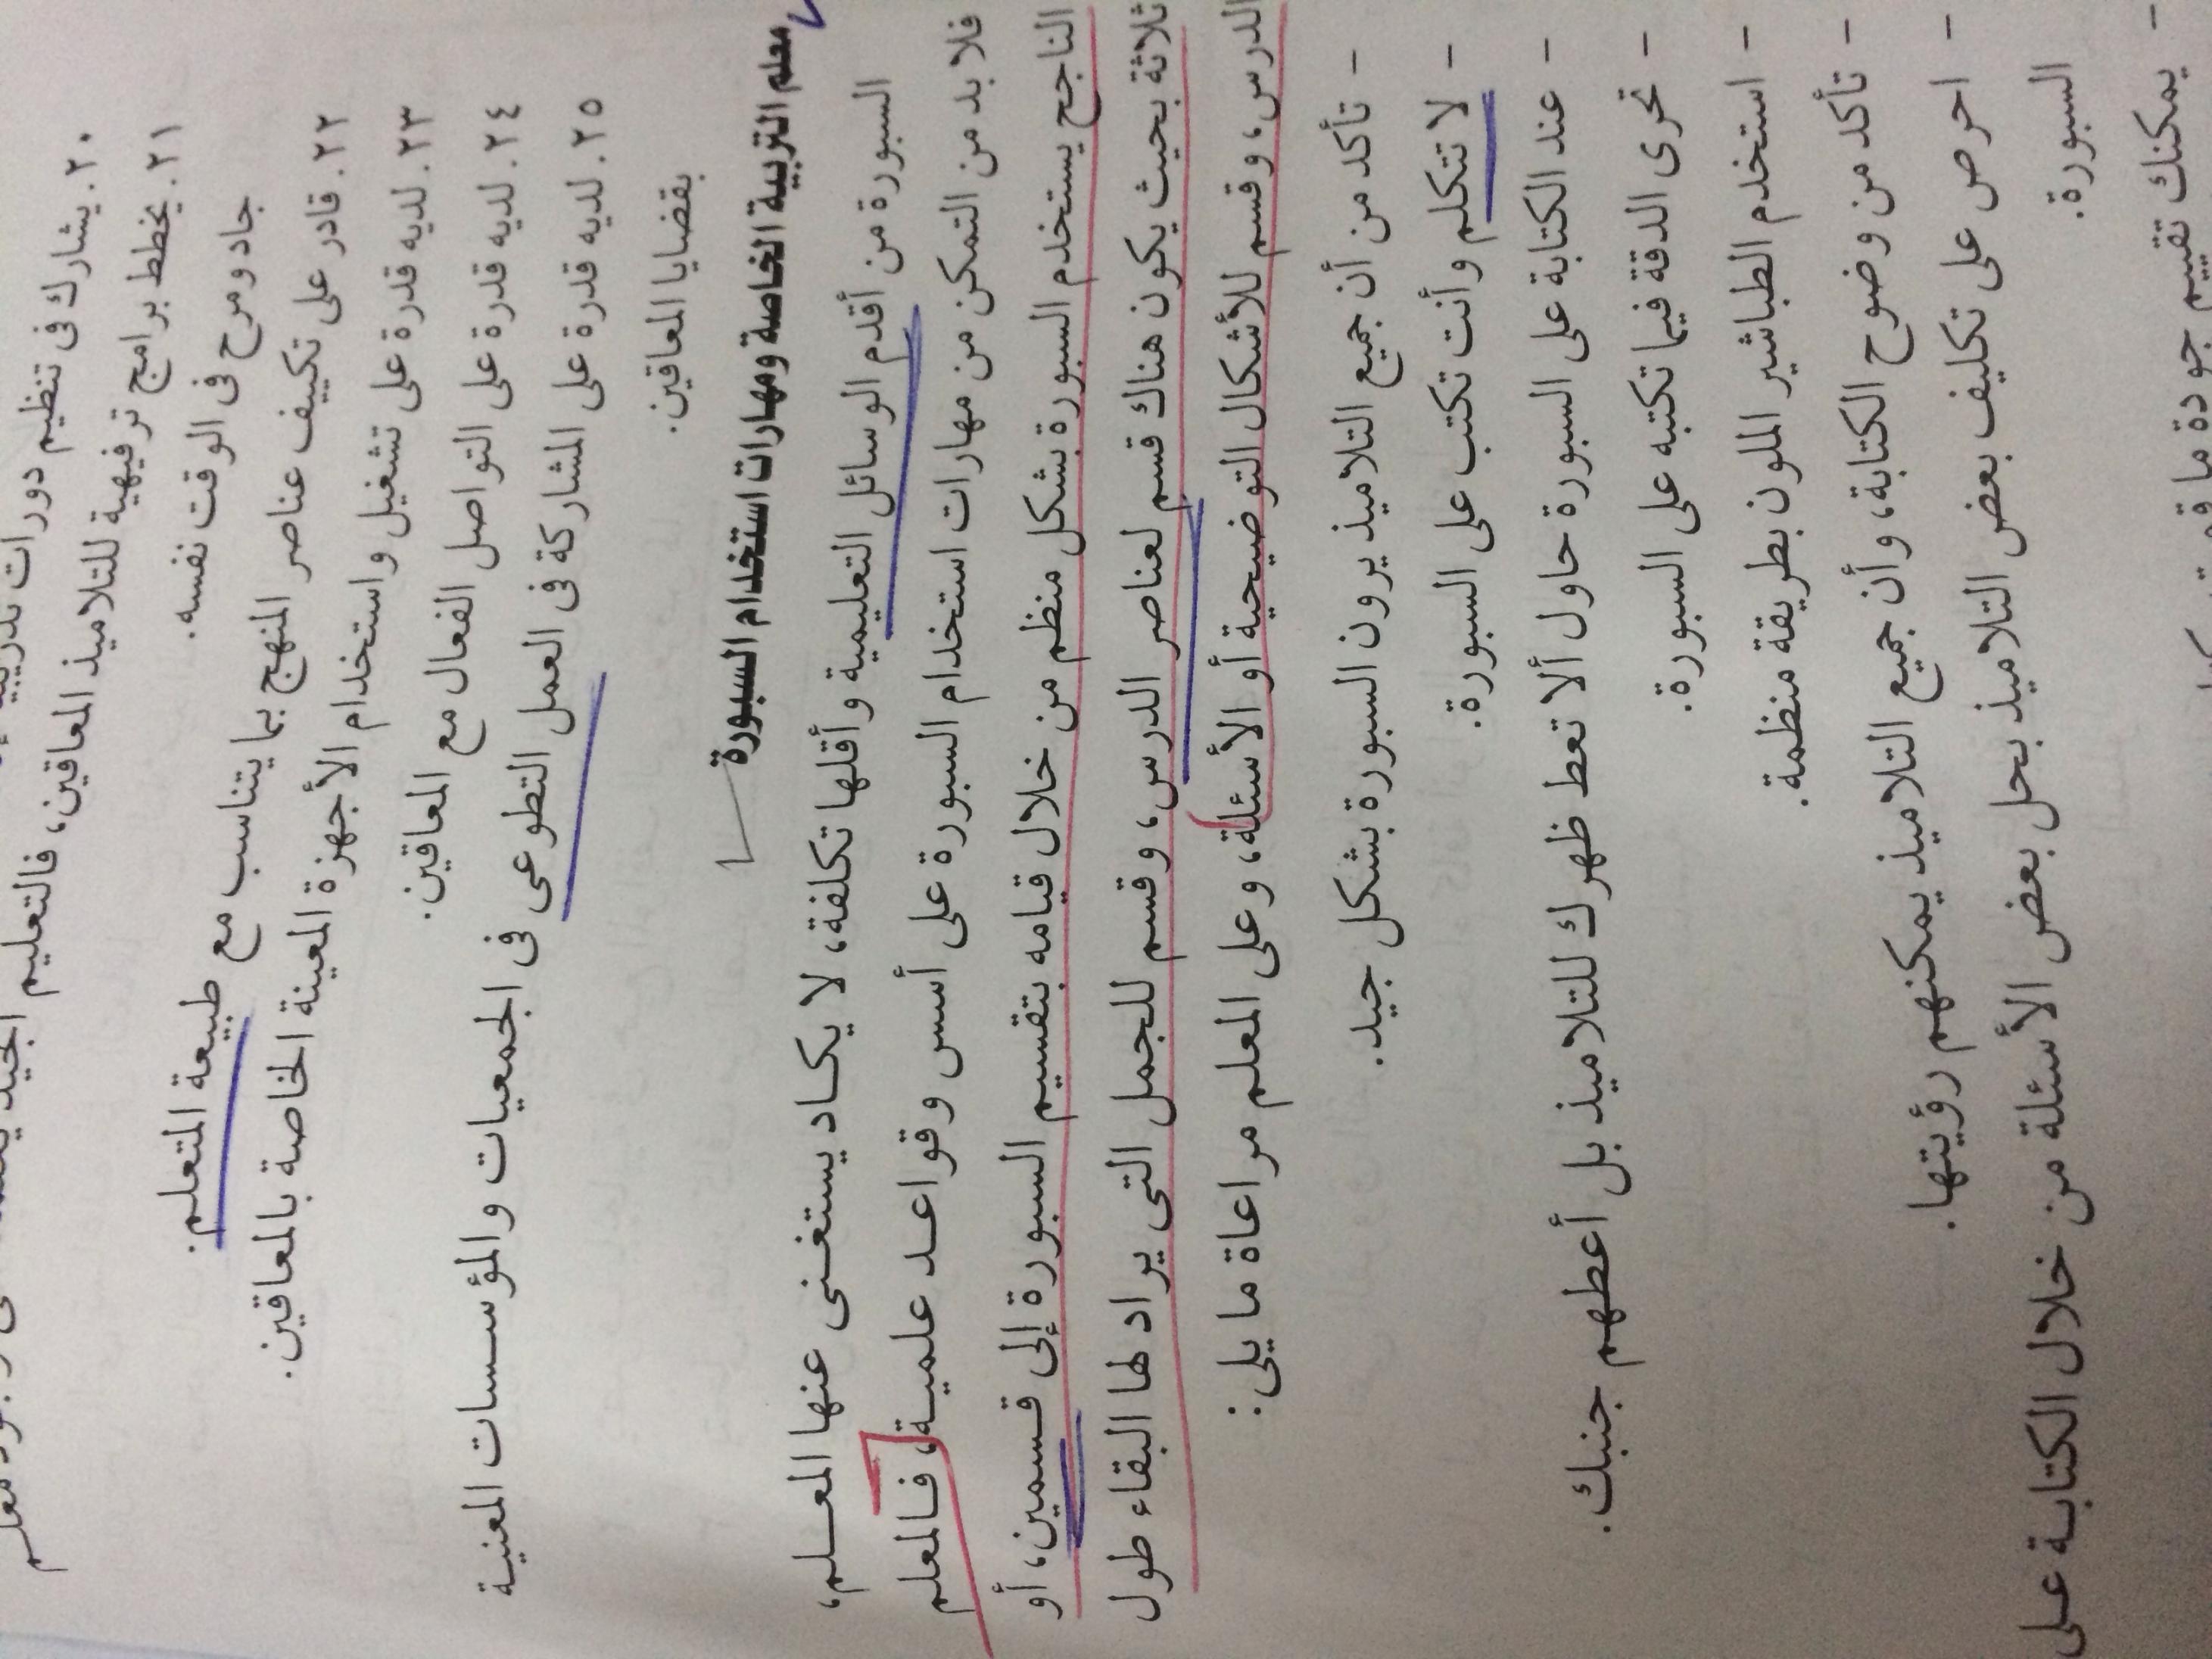 ٢٠. يشارك فى تنظيم دورات تدريبية
للتلاميذ المعاقين، فالتعليم الجيد
٢١. يخطط برامج ترفيهية للتلاميذ المعاقين،
جاد ومرح فى الوقت نفسه.
٢٢. قادر على تكييف عناصر المنهج بما يتناسب مع طبيعة المتعلم.
٢٣. لديه قدرة على تشغيل واستخدام الأجهزة المعينة الخاصة بالمعاقين.
٢٤. لديه قدرة على التواصل الفعال مع المعاقين.
٢٥. لديه قدرة على المشاركة فى العمل التطوعى فى الجمعيات والمؤسسات المعنية
بقضايا المعاقين.
معلم التربية الخاصة ومهارات استخدام السبورة
السبورة من أقدم الوسائل التعليمية وأقلها تكلفة، لا يكاد يستغنى عنها المعلم،
فلا بد من التمكن من مهارات استخدام السبورة على أسس وقواعد علمية، فالمعلم
الناجح يستخدم السبورة بشكل منظم من خلال قيامه بتقسيم السبورة إلى قسمين، أو
ثلاثة بحيث يكون هناك قسم لعناصر الدرس، وقسم للجمل التى يراد لها البقاء طول
الدرس، وقسم للأشكال التوضيحية أو الأسئلة، وعلى المعلم مراعاة ما يلى:
- تأكد من أن جميع التلاميذ يرون السبورة بشكل جيد.
- لا تتكلم وأنت تكتب على السبورة.
- عند الكتابة على السبورة حاول ألا تعط ظهرك للتلاميذ بل أعطهم جنبك.
- تحرى الدقة فيما تكتبه على السبورة.
- استخدم الطباشير الملون بطريقة منظمة.
- تأكد من وضوح الكتابة، وأن جميع التلاميذ يمكنهم رؤيتها.
- احرص على تكليف بعض التلاميذ بحل بعض الأسئلة من خلال الكتابة على
السبورة.
- يمكنك تقييم جودة ما قمت